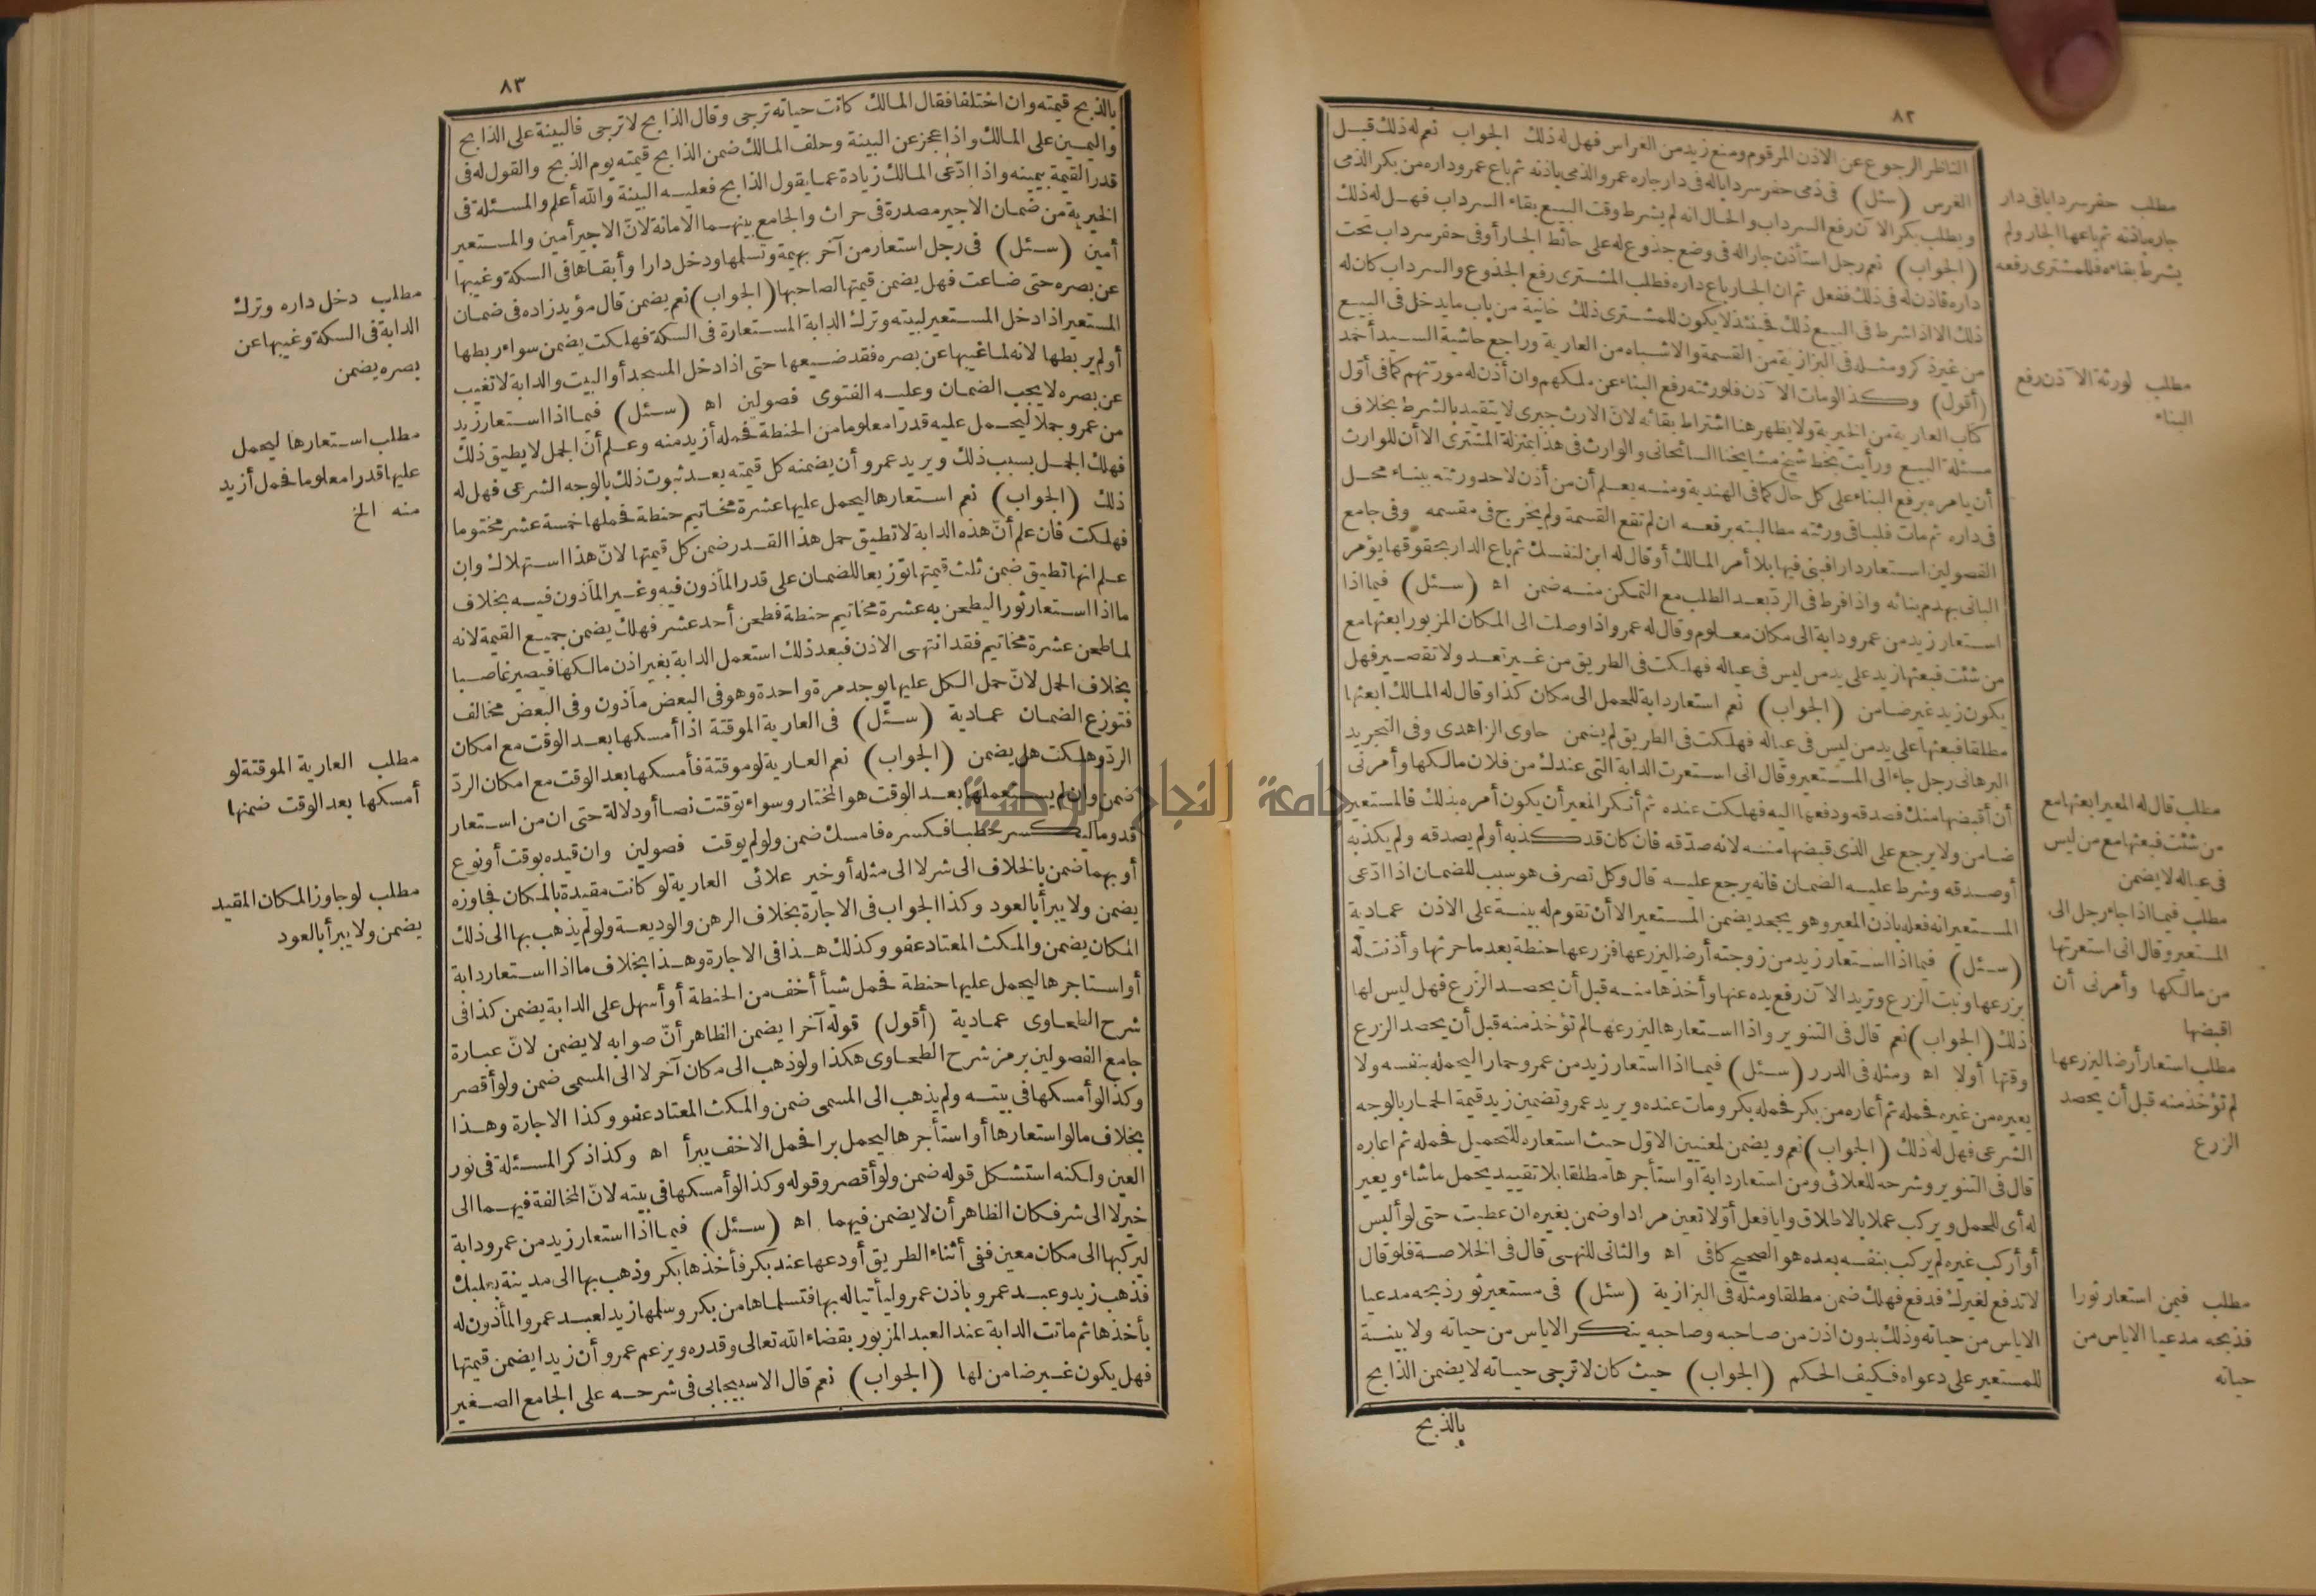 ٨٢
الناظر الرجوع عن الاذن المرقوم ومنع زيد من الغراس فهل له ذلك الجواب نعم له ذلك قبل
الغرس (سئل) فى ذمى حفر سردابا له فى دار جاره عمرو الذمى باذنه ثم باع عمرو داره من بكر الذمى
ويطلب بكر الآن رفع السرداب والحال انه لم يشرط وقت البيع بقاء السرداب فهل له ذلك
(الجواب) نعم رجل استأذن جارا له فى وضع جذوع له على حائط الجار أو فى حفر سرداب تحت
داره فاذن له فى ذلك ففعل ثم ان الجار باع داره فطلب المشترى رفع الجذوع والسرداب كان له
ذلك الا اذا شرط فى البيع ذلك فحينئذ لا يكون للمشترى ذلك خانية من باب ما يدخل فى البيع
من غير ذكر ومثله فى البزازية من القسمة والاشباه من العارية وراجع حاشية السيد أحمد
(أقول) وكذا لو مات الآذن فلورثته رفع البناء عن ملكهم وان أذن له مورثهم كما فى أول
كتاب العارية من الخيرية ولا يظهر هنا اشتراط بقائه لانّ الارث جبرى لا يتقيد بالشرط بخلاف
مسئلة البيع ورأيت بخط شيخ مشايخنا السائحانى والوارث فى هذا بمنزلة المشترى الا أن للوارث
أن يامره برفع البناء على كل حال كما فى الهندية ومنه يعلم أن من أذن لاحد ورثته ببناء محل
فى داره ثم مات فلباقى ورثته مطالبته برفعه ان لم تقع القسمة ولم يخرج فى مقسمه وفى جامع
الفصولين استعار دارا فبنى فيها بلا أمر المالك أو قال له ابن لنفسك ثم باع الدار بحقوقها يؤمر
البانى بهدم بنائه واذا فرط فى الردّ بعد الطلب مع التمكن منه ضمن اه (سئل) فيما اذا
استعار زيد من عمرو دابة الى مكان معلوم وقال له عمرو اذا وصلت الى المكان المزبور ابعثها مع
من شئت فبعثها زيد على يد من ليس فى عياله فهلكت فى الطريق من غير تعد ولا تقصير فهل
يكون زيد غير ضامن (الجواب) نعم استعار دابة للحمل الى مكان كذا وقال له المالك ابعثها
مطلقا فبعثها على يد من ليس فى عياله فهلكت فى الطريق لم يضمن حاوى الزاهدى وفى التجريد
البرهانى رجل جاء الى المستعير وقال انى استعرت الدابة التى عندك من فلان مالكها وأمرنى
أن أقبضها منك فصدقه ودفعها اليه فهلكت عنده ثم أنكر المعير أن يكون أمره بذلك فالمستعير
ضامن ولا يرجع على الذى قبضها منه لانه صدّقه فان كان قد كذبه أو لم يصدقه ولم يكذبه
أو صدقه وشرط عليه الضمان فانه يرجع عليه قال وكل تصرف هو سبب للضمان اذا ادّعى
المستعير انه فعله باذن المعير وهو يجحد يضمن المستعير الا أن تقوم له بينة على الاذن عمادية
(سئل) فيما اذا استعار زيد من زوجته أرضا ليزرعها فزرعها حنطة بعد ما حرثها وأذنت له
بزرعها ونبت الزرع وتريد الآن رفع يده عنها وأخذها منه قبل أن يحصد الزرع فهل ليس لها
ذلك (الجواب) نعم قال فى التنوير واذا استعارها ليزرعها لم تؤخذ منه قبل أن يحصد الزرع
وقتها أولا اه ومثله فى الدرر (سئل) فيما اذا استعار زيد من عمرو حمارا ليحمله بنفسه ولا
يعيره من غيره فحمله ثم أعاره من بكر فحمله بكر ومات عنده ويريد عمرو تضمين زيد قيمة الحمار بالوجه
الشرعى فهل له ذلك (الجواب) نعم ويضمن لمعنيين الاوّل حيث استعاره للتحميل فحمله ثم اعاره
قال فى التنوير وشرحه للعلائى ومن استعار دابة أو استأجرها مطلقا بلا تقييد يحمل ما شاء ويعير
له أى للحمل ويركب عملا بالاطلاق وايا فعل أوّلا تعين مرادا وضمن بغيره ان عطبت حتى لو ألبس
أو أركب غيره لم يركب بنفسه بعده هو الصحيح كافى اه والثانى للنهى قال فى الخلاصة فلو قال
لا تدفع لغيرك فدفع فهلك ضمن مطلقا ومثله فى البزازية (سئل) فى مستعير ثور ذبحه مدعيا
الاياس من حياته وذلك بدون اذن من صاحبه وصاحبه ينكر الاياس من حياته ولا بينة
للمستعير على دعواه فكيف الحكم (الجواب) حيث كان لا ترجى حياته لا يضمن الذابح
بالذبح
مطلب حفر سردابا فى دار
جاره باذنه ثم باعها الجار ولم
يشرط بقاءه فللمشترى رفعه
مطلب لورثة الآذن رفع
البناء
مطلب قال له المعير ابعثها مع
من شئت فبعثها مع من ليس
فى عياله لا يضمن
مطلب فيما اذا جاء رجل الى
المستعير وقال انى استعرتها
من مالكها وأمرنى أن
اقبضها
مطلب استعار أرضا ليزرعها
لم تؤخذ منه قبل أن يحصد
الزرع
مطلب فيمن استعار ثورا
فذبحه مدعيا الاياس من
حياته
٨٣
بالذبح قيمته وان اختلفا فقال المالك كانت حياته ترجى وقال الذابح لا ترجى فالبينة على الذابح
واليمين على المالك واذا عجز عن البينة وحلف المالك ضمن الذابح قيمته يوم الذبح والقول له فى
قدر القيمة بيمينه واذا ادّعى المالك زيادة عما يقول الذابح فعليه البينة والله أعلم والمسئلة فى
الخيرية من ضمان الاجير مصدرة فى حراث والجامع بينهما الامانة لانّ الاجير أمين والمستعير
أمين (سئل) فى رجل استعار من آخر بهيمة وتسلمها ودخل دارا وأبقاها فى السكة وغيبها
عن بصره حتى ضاعت فهل يضمن قيمتها لصاحبها (الجواب) نعم يضمن قال مؤيد زاده فى ضمان
المستعير اذا دخل المستعير لبيته وترك الدابة المستعارة فى السكة فهلكت يضمن سواء ربطها
أو لم يربطها لانه لما غيبها عن بصره فقد ضيعها حتى اذا دخل المسجد أو البيت والدابة لا تغيب
عن بصره لا يجب الضمان وعليه الفتوى فصولين اه (سئل) فيما اذا استعار زيد
من عمرو جملا ليحمل عليه قدرا معلوما من الحنطة فحمله أزيد منه وعلم أنّ الجمل لا يطيق ذلك
فهلك الجمل بسبب ذلك ويريد عمرو أن يضمنه كل قيمته بعد ثبوت ذلك بالوجه الشرعى فهل له
ذلك (الجواب) نعم استعارها ليحمل عليها عشرة مخاتيم حنطة فحملها خمسة عشر مختوما
فهلكت فان علم أنّ هذه الدابة لا تطيق حمل هذا القدر ضمن كل قيمتها لانّ هذا استهلاك وان
علم انها تطيق ضمن ثلث قيمتها توزيعا للضمان على قدر المأذون فيه وغير المأذون فيه بخلاف
ما اذا استعار ثورا ليطحن به عشرة مخاتيم حنطة فطحن أحد عشر فهلك يضمن جميع القيمة لانه
لما طحن عشرة مخاتيم فقد انتهى الاذن فبعد ذلك استعمل الدابة بغير اذن مالكها فيصير غاصبا
بخلاف الحمل لانّ حمل الكل عليها يوجد مرة واحدة وهو فى البعض مأذون وفى البعض مخالف
فتوزع الضمان عمادية (سئل) فى العارية الموقتة اذا أمسكها بعد الوقت مع امكان
الردّ وهلكت هل يضمن (الجواب) نعم العارية لو موقتة فأمسكها بعد الوقت مع امكان الردّ
ضمن وان لم يستعملها بعد الوقت هو المختار وسواء توقتت نصا أو دلالة حتى ان من استعار
قدوما ليكسر حطبا فكسره فامسك ضمن ولو لم يوقت فصولين وان قيده بوقت أو نوع
أو بهما ضمن بالخلاف الى شر لا الى مثله أو خير علائى العارية لو كانت مقيدة بالمكان فجاوزه
يضمن ولا يبرأ بالعود وكذا الجواب فى الاجارة بخلاف الرهن والوديعة ولو لم يذهب بها الى ذلك
المكان يضمن والمكث المعتاد عفو وكذلك هذا فى الاجارة وهذا بخلاف ما اذا استعار دابة
أو استاجرها ليحمل عليها حنطة فحمل شيأ أخف من الحنطة أو أسهل على الدابة يضمن كذا فى
شرح الطحاوى عمادية (أقول) قوله آخرا يضمن الظاهر أنّ صوابه لا يضمن لانّ عبارة
جامع الفصولين برمز شرح الطحاوى هكذا ولو ذهب الى مكان آخر لا الى المسمى ضمن ولو أقصر
وكذا لو أمسكها فى بيته ولم يذهب الى المسمى ضمن والمكث المعتاد عفو وكذا الاجارة وهذا
بخلاف ما لو استعارها أو استأجرها ليحمل برا فحمل الاخف يبرأ اه وكذا ذكر المسئلة فى نور
العين ولكنه استشكل قوله ضمن ولو أقصر وقوله وكذا لو أمسكها فى بيته لانّ المخالفة فيهما الى
خير لا الى شر فكان الظاهر أن لا يضمن فيهما اه (سئل) فيما اذا استعار زيد من عمرو دابة
ليركبها الى مكان معين ففى أثناء الطريق أودعها عند بكر فأخذها بكر وذهب بها الى مدينة بعلبك
فذهب زيد وعبد عمرو باذن عمرو ليأتيا له بها فتسلماها من بكر وسلمها زيد لعبد عمرو المأذون له
بأخذها ثم ماتت الدابة عند العبد المزبور بقضاء الله تعالى وقدره ويزعم عمرو أن زيدا يضمن قيمتها
فهل يكون غير ضامن لها (الجواب) نعم قال الاسبيجابى فى شرحه على الجامع الصغير
مطلب دخل داره وترك
الدابة فى السكة وغيبها عن
بصره يضمن
مطلب استعارها ليحمل
عليها قدرا معلوما فحمل أزيد
منه الخ
مطلب العارية الموقتة لو
أمسكها بعد الوقت ضمنها
مطلب لو جاوز المكان المقيد
يضمن ولا يبرأ بالعود
جامعة النجاح الوطنية